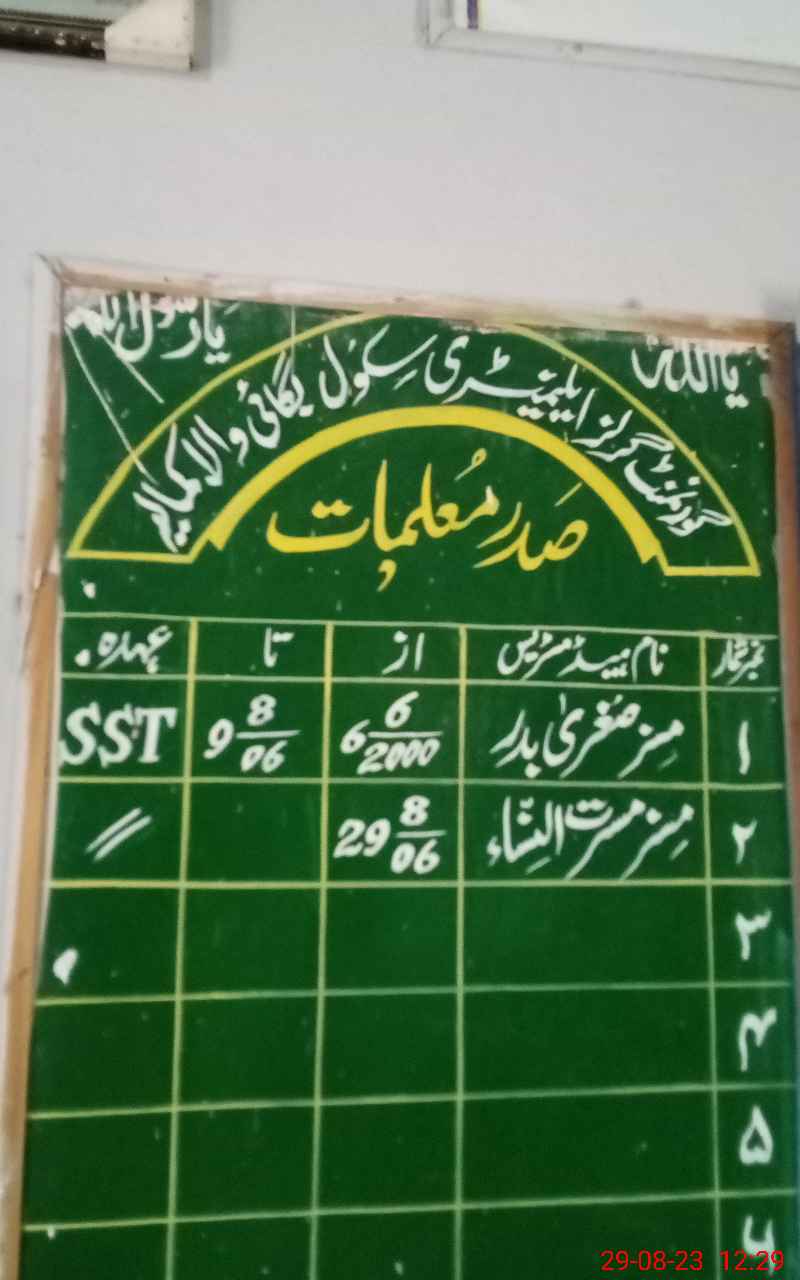 یا اللہ یا رسول اللہ
گورنمنٹ گرلز ایلیمنٹری سکول بگائی والا کمالیہ
صدر معلمات
نمبر شمار نام ہیڈ مسٹریس از تا عہدہ
۱ مسز صغریٰ بدر 6 6/2000 9 8/06 SST
۲ مسز مسرت النساء 29 8/06 //
۳
۴
۵
۶
29-08-23 12:29